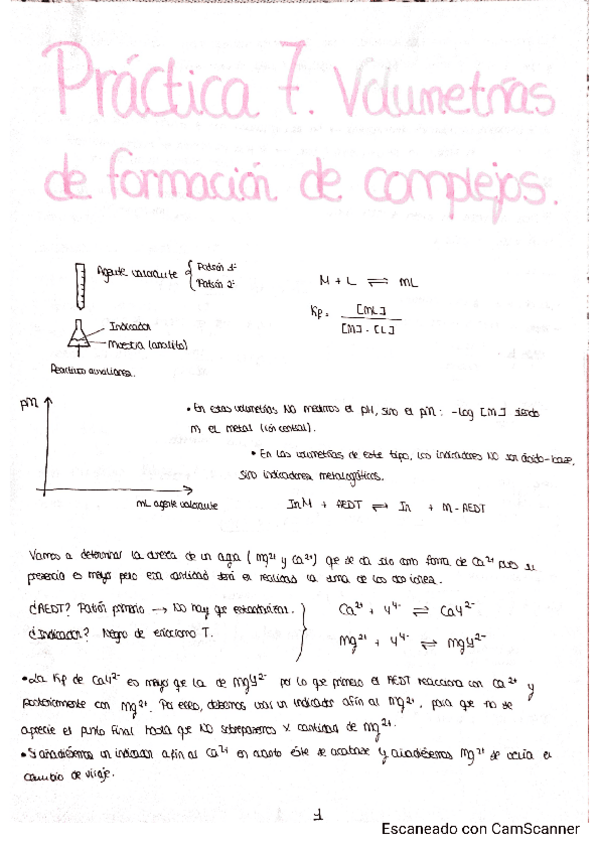 Práctica 7. Volumetrías
de formación de complejos.
Agente valorante { Patrón 1º
Patrón 2º
Indicador
Muestra (analito)
Reactivo auxiliares.
M + L ⇌ ML
Kf = [ML]
[M] · [L]
pM
• En estas volumetrías NO medimos el pH, sino el pM: -log [M] siendo
M el metal (ión central).
• En las volumetrías de este tipo, los indicadores NO son ácido-base,
sino indicadores
mL agente valorante
InM + AEDT ⇌ In + M-AEDT
Vamos a determinar la dureza de un agua (Mg²⁺ y Ca²⁺) que se da sólo como forma de Ca²⁺ pues su
presencia es mayor pero esa cantidad será en realidad la suma de los dos iones.
¿AEDT? Patrón primario → NO hay que estandarizar.
¿Indicador? Negro de ericromo T.
Ca²⁺ + Y⁴⁻ ⇌ CaY²⁻
Mg²⁺ + Y⁴⁻ ⇌ MgY²⁻
• La Kf de CaY²⁻ es mayor que la de MgY²⁻ por lo que primero el AEDT reacciona con Ca²⁺ y
posteriormente con Mg²⁺. Por eso, debemos usar un indicador afín al Mg²⁺, para que no se
aprecie el punto final hasta que NO sobrepasemos x cantidad de Mg²⁺.
• Si añadiésemos un indicador afín al Ca²⁺ en cuanto éste se acabase y añadiésemos Mg²⁺ se vería el
cambio de viraje.
1
Escaneado con CamScanner